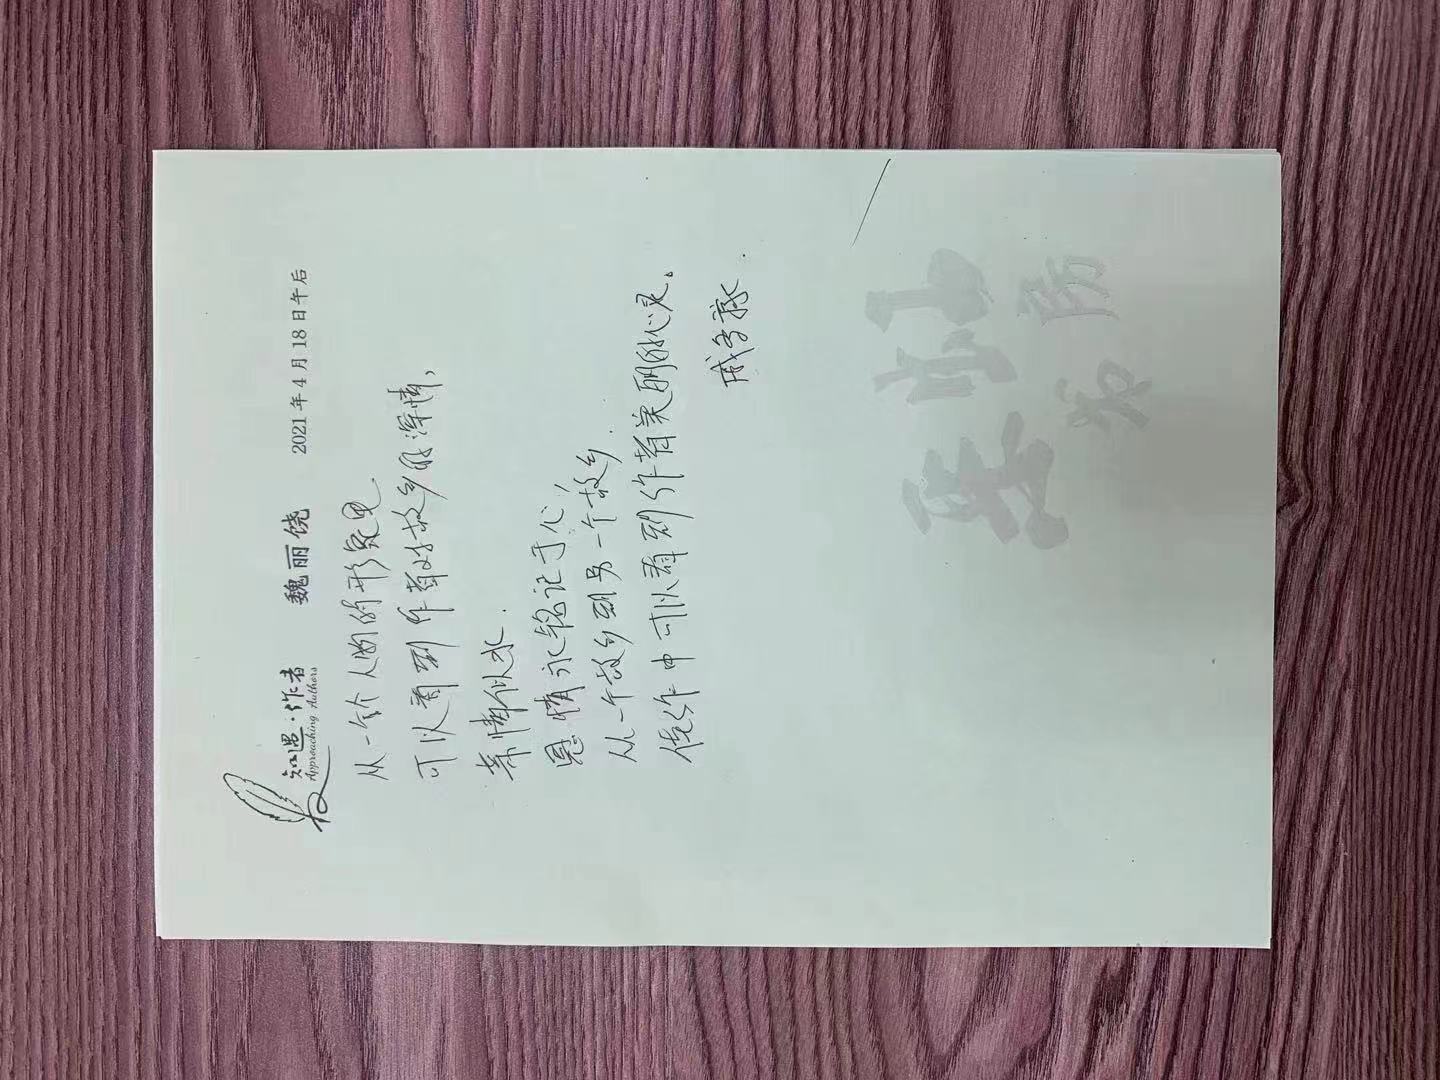 知遇·作者
Approaching Authors
魏丽饶
2021年4月18日午后
从一个个人物的形象里
可以看到作者对故乡的深情,
亲情似水.
恩情永铭记于心,
从一个故乡到另一个故乡.
使作中可以看到作者美丽的心灵。